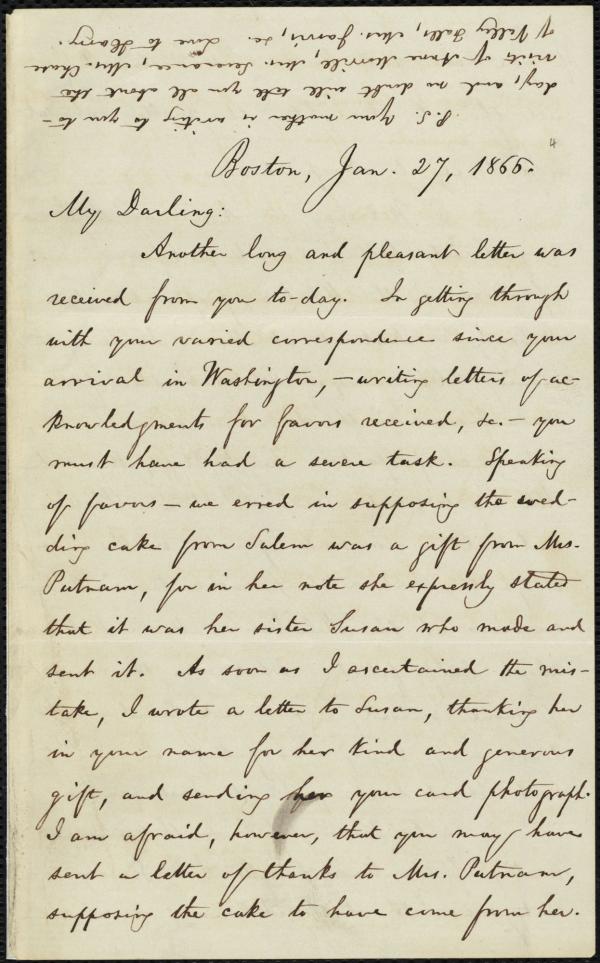 P.S. Your mother is writing to you to-
day, and no doubt will tell you all about the
visits of Anne Morrill, Mrs. Severance, Mrs. Chace
of Valley Falls, Mrs. Jarvis, &c. Love to Harry.
Boston, Jan. 27, 1866.
My Darling:
Another long and pleasant letter was
received from you to-day. In getting through
with your varied correspondence since your
arrival in Washington, — writing letters of ac-
knowledgments for favors received, &c. — you
must have had a severe task. Speaking
of favors — we erred in supposing the wed-
ding cake from Salem was a gift from Mrs.
Putnam, for in her note she expressly stated
that it was her sister Susan who made and
sent it. As soon as I ascertained the mis-
take, I wrote a letter to Susan, thanking her
in your name for her kind and generous
gift, and sending her your card photograph.
I am afraid, however, that you may have
sent a letter of thanks to Mrs. Putnam,
supposing the cake to have come from her.